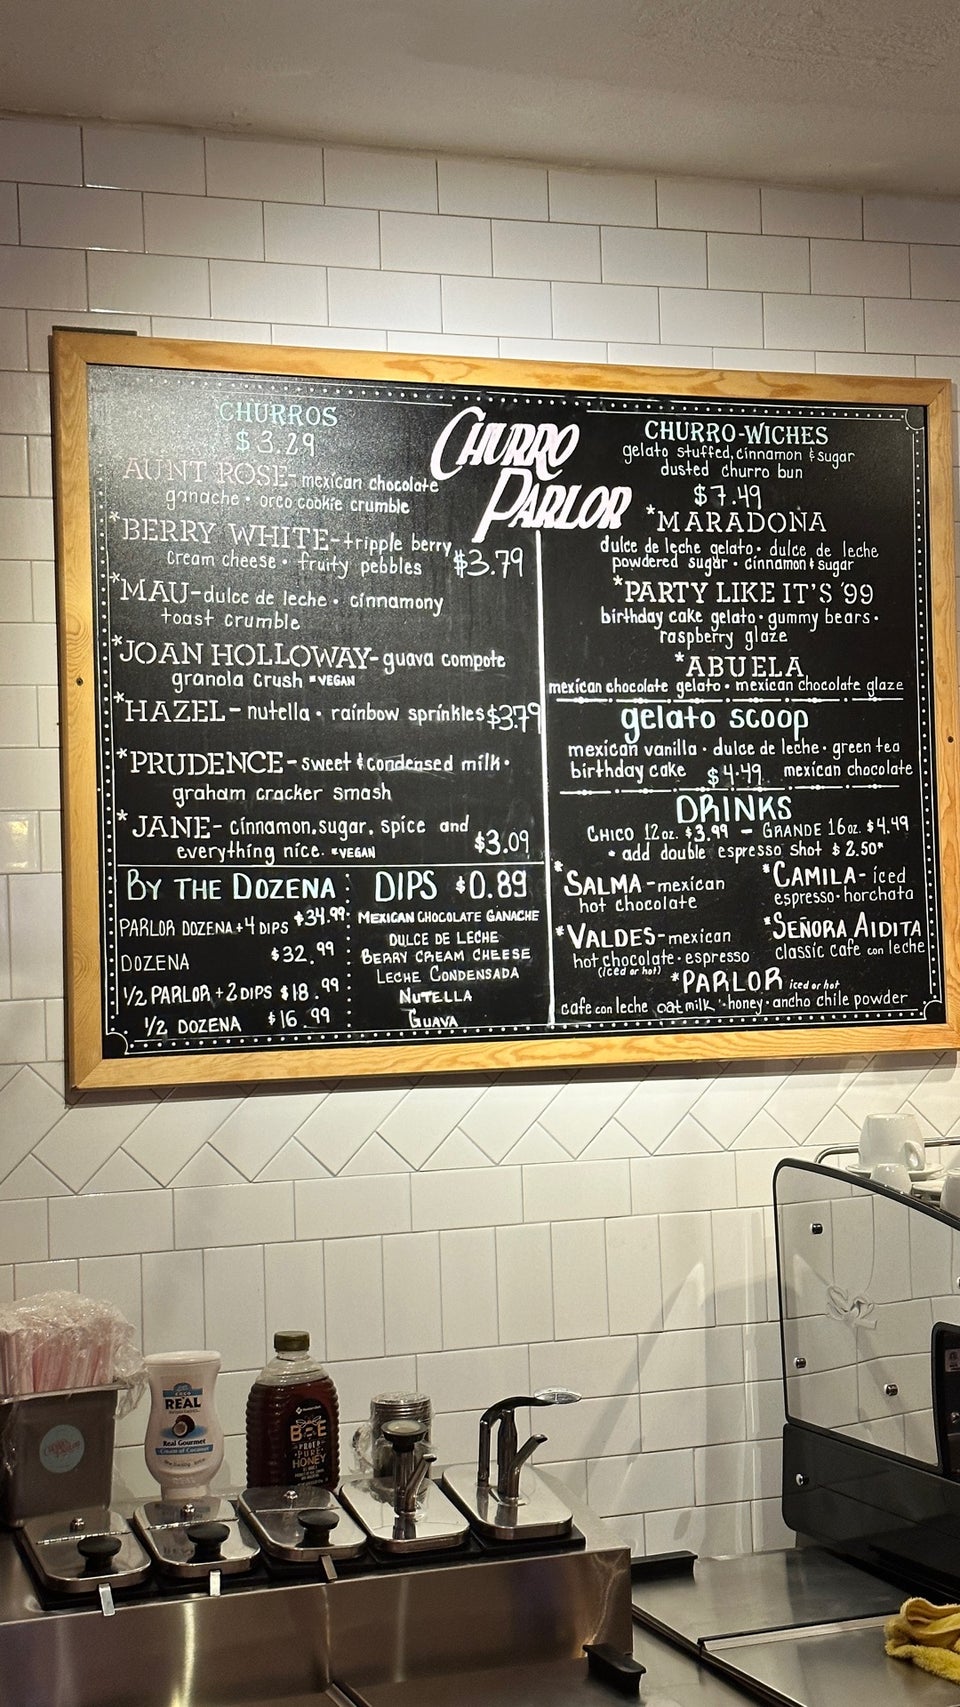 CHURRO
PARLOR
CHURROS
$3.29
AUNT ROSE-mexican chocolate
ganache • orco cookie crumble
*BERRY WHITE-tripple berry
cream cheese • fruity pebbles $3.79
*MAU-dulce de leche • cinnamony
toast crumble
*JOAN HOLLOWAY-guava compote
granola crush *VEGAN
*HAZEL- nutella • rainbow sprinkles $3.79
*PRUDENCE-sweet & condensed milk•
graham cracker smash
*JANE- cinnamon,sugar, spice and
everything nice. *VEGAN $3.09
BY THE DOZENA:
PARLOR DOZENA+4 DIPS $34.99
DOZENA $32.99
1/2 PARLOR +2 DIPS $18.99
1/2 DOZENA $16.99
DIPS $0.89
MEXICAN CHOCOLATE GANACHE
DULCE DE LECHE
BERRY CREAM CHEESE
LECHE CONDENSADA
NUTELLA
GUAVA
CHURRO-WICHES
gelato stuffed, cinnamon & sugar
dusted churro bun
$7.49
*MARADONA
dulce de leche gelato• dulce de leche
powdered sugar • cinnamon & sugar
*PARTY LIKE IT'S '99
birthday cake gelato • gummy bears•
raspberry glaze
*ABUELA
mexican chocolate gelato • mexican chocolate glaze
gelato scoop
mexican vanilla • dulce de leche • green tea
birthday cake $4.49 mexican chocolate
DRINKS
CHICO 12oz. $3.99 - GRANDE 16oz. $4.49
* add double espresso shot $2.50*
*SALMA-mexican
hot chocolate
*CAMILA- iced
espresso•horchata
*VALDES-mexican
hot chocolate • espresso
(iced or hot)
*SEÑORA AIDITA
classic cafe con leche
*PARLOR iced or hot
cafe con leche oat milk • honey • ancho chile powder
COCO
REAL
Real Gourmet
Cream of Coconut
BEE
PROUD
PURE
HONEY